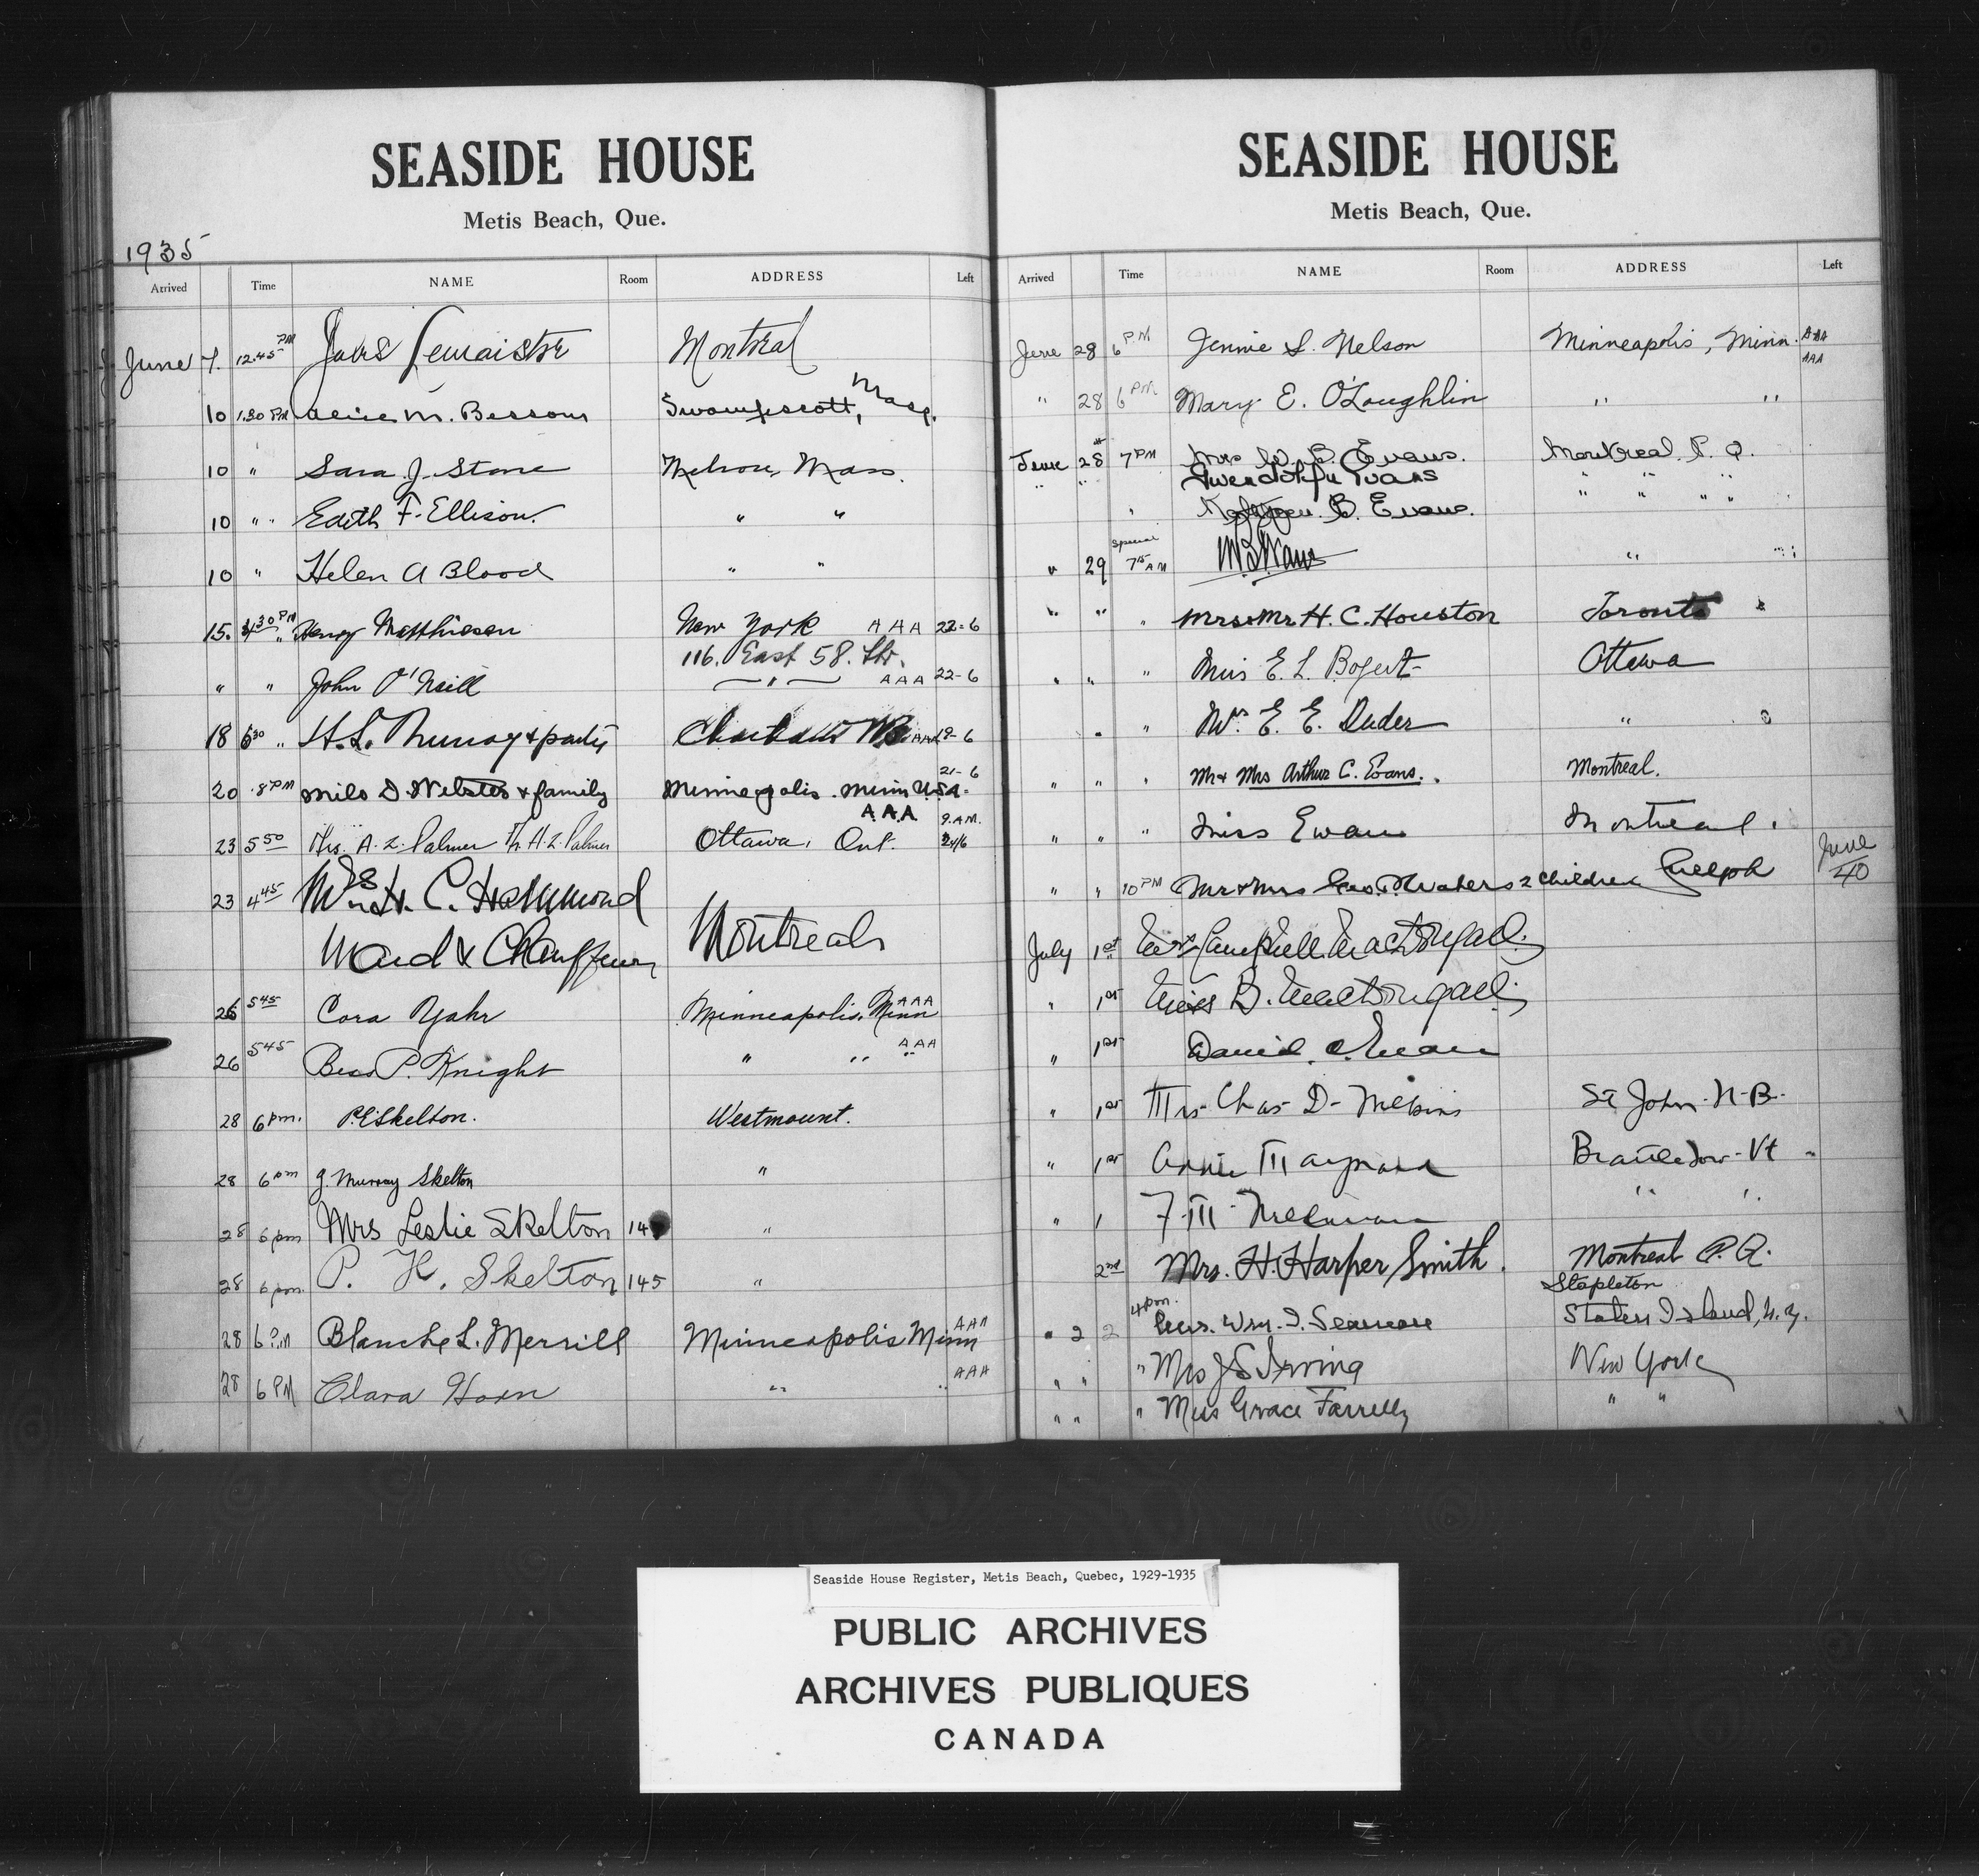 SEASIDE HOUSE
Metis Beach, Que.
1935
Arrived Time NAME Room ADDRESS Left
June 7. 12.45 PM Montreal
10 1.30 PM Alice M. Bessom Swampscott, Mass.
10 " Sara J. Stone Melrose, Mass.
10 " " Edith F. Ellison. " "
10 " Helen A Blood " "
15. 30 PM Henry Matthiesen New York AAA 22-6
116. East 58. Str.
" " John O'Neill " AAA 22-6
18 630 " H. L. Murray & party AAA 19-6
21-6
20 8 PM Milo D. Webster & family Minneapolis. Minn U.S.A.
AAA 9.A.M.
23 5 50 Mrs. A. L. Palmer H. L. Palmer Ottawa, Ont. 24/6
23 4 45 H. C. Hammond
Maid & Chauffeur Montreal
26 5 45 Cora Yahr Minneapolis, Minn AAA
26 545 Bess P. Knight " " " AAA
28 6 pm. P.E Skelton. Westmount.
28 6 pm J. Murray Skelton "
28 6 pm Mrs Leslie Skelton 14 "
28 6 pm. P. H. Skelton 145 "
28 6 P.M Blanche L. Merrill Minneapolis Minn AAA
28 6 PM Clara Horn " " AAA
SEASIDE HOUSE
Metis Beach, Que.
Arrived Time NAME Room ADDRESS Left
June 28 6 PM Jennie S. Nelson Minneapolis, Minn. AAA
AAA
" 28 6 PM Mary E. O'Loughlin " "
June 28 7 PM Mrs W. B. Evans. Montreal P. Q.
" " Gwendolyn Evans " " "
" B. Evans. " " " "
Special
" 29 7 15 AM " "
" " " Mrs & Mr H. C. Houston Toronto
" " " Miss E. L. Bogert Ottawa
" " Mrs E. E. Duder "
" " " Mr & Mrs Arthur C. Evans. Montreal.
" " " Miss Ewan Montreal.
" " 10 PM Mr & Mrs Geo. Waters 2 children Guelph June
40
July 1st Mrs Campbell MacDougall.
" 1st Miss B. MacDougall.
" 1st David Ewan
" 1st Mrs Chas D. St John. N-B.
" 1st Annie Maynard Brattleboro - Vt
" 1 F. M. " "
2nd Mrs. H. Harper Smith. Montreal P. Q.
Stapleton
4 pm.
" 2 2 Mrs. Wm. Staten Island, N.Y.
" " " Mrs J S Irving New York
" " " Miss Grace Farrelly " "
Seaside House Register, Metis Beach, Quebec, 1929-1935
PUBLIC ARCHIVES
ARCHIVES PUBLIQUES
CANADA